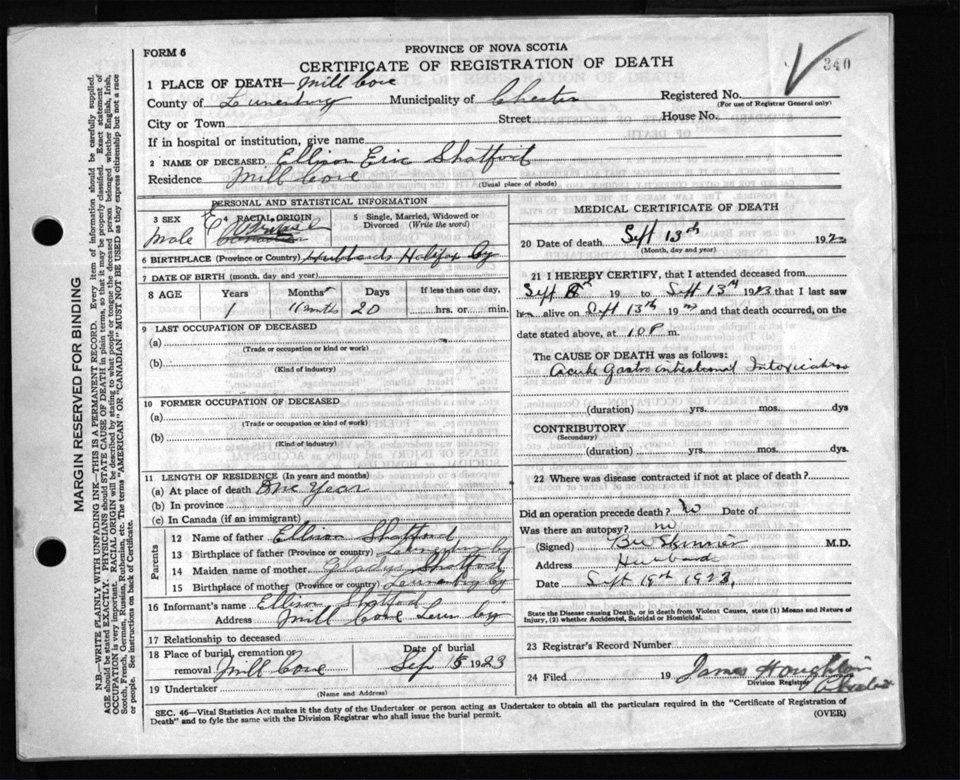 FORM 6
PROVINCE OF NOVA SCOTIA
CERTIFICATE OF REGISTRATION OF DEATH
340
1 PLACE OF DEATH— Mill Cove
County of Lunenburg Municipality of Chester Registered No.
(For use of Registrar General only)
City or Town Street House No.
If in hospital or institution, give name
2 NAME OF DECEASED Ellison Eric Shatford
Residence Mill Cove
(Usual place of abode)
PERSONAL AND STATISTICAL INFORMATION
3 SEX 4 RACIAL ORIGIN 5 Single, Married, Widowed or Divorced (Write the word)
Male
6 BIRTHPLACE (Province or Country) Hubbards Halifax Cy
7 DATE OF BIRTH (month, day and year)
8 AGE Years Months Days If less than one day,
1 11 months 20 hrs. or min.
9 LAST OCCUPATION OF DECEASED
(a)
(Trade or occupation or kind or work)
(b)
(Kind of industry)
10 FORMER OCCUPATION OF DECEASED
(a)
(Trade or occupation or kind of work)
(b)
(Kind of industry)
11 LENGTH OF RESIDENCE (In years and months)
(a) At place of death One Year
(b) In province
(c) In Canada (if an immigrant)
Parents
12 Name of father Ellison Shatford
13 Birthplace of father (Province or country) Cy
14 Maiden name of mother Gladys Shatford
15 Birthplace of mother (Province or country) Lunenburg Cy
16 Informant's name Ellison Shatford
Address Mill Cove Lun Cy
17 Relationship to deceased
18 Place of burial, cremation or removal Mill Cove Date of burial Sep 15 1923
19 Undertaker
(Name and Address)
MEDICAL CERTIFICATE OF DEATH
20 Date of death Sept 13th 192
(Month, day and year)
21 I HEREBY CERTIFY, that I attended deceased from
Sept 8th 19 to Sept 13th 1923 that I last saw
him alive on Sept 13th 19 and that death occurred, on the
date stated above, at 10 P m.
The CAUSE OF DEATH was as follows:
Acute Gastro intestinal Intoxication
(duration) yrs. mos. dys
CONTRIBUTORY
(Secondary)
(duration) yrs. mos. dys.
22 Where was disease contracted if not at place of death?
Did an operation precede death? No Date of
Was there an autopsy? no
(Signed) Skinner M.D.
Address Hubbards
Date Sept 19th 1923.
State the Disease causing Death, or in death from Violent Causes, state (1) Means and Nature of
Injury, (2) whether Accidental, Suicidal or Homicidal.
23 Registrar's Record Number
24 Filed 19 James Houghton
Division Registrar
Chester
SEC. 46—Vital Statistics Act makes it the duty of the Undertaker or person acting as Undertaker to obtain all the particulars required in the "Certificate of Registration of
Death" and to fyle the same with the Division Registrar who shall issue the burial permit.
(OVER)
MARGIN RESERVED FOR BINDING
N.B.—WRITE PLAINLY WITH UNFADING INK—THIS IS A PERMANENT RECORD. Every item of information should be carefully supplied.
AGE should be stated EXACTLY. PHYSICIANS should STATE CAUSE OF DEATH in plain terms, so that it may be properly classified. Exact statement of
OCCUPATION is very important. RACIAL ORIGIN will be described by stating to what people or tongue the deceased person belonged whether English, Irish,
Scotch, French, German, Russian, Ruthenian, etc. The terms "AMERICAN" OR "CANADIAN" MUST NOT BE USED as they express citizenship but not a race
or people. See instructions on back of Certificate.